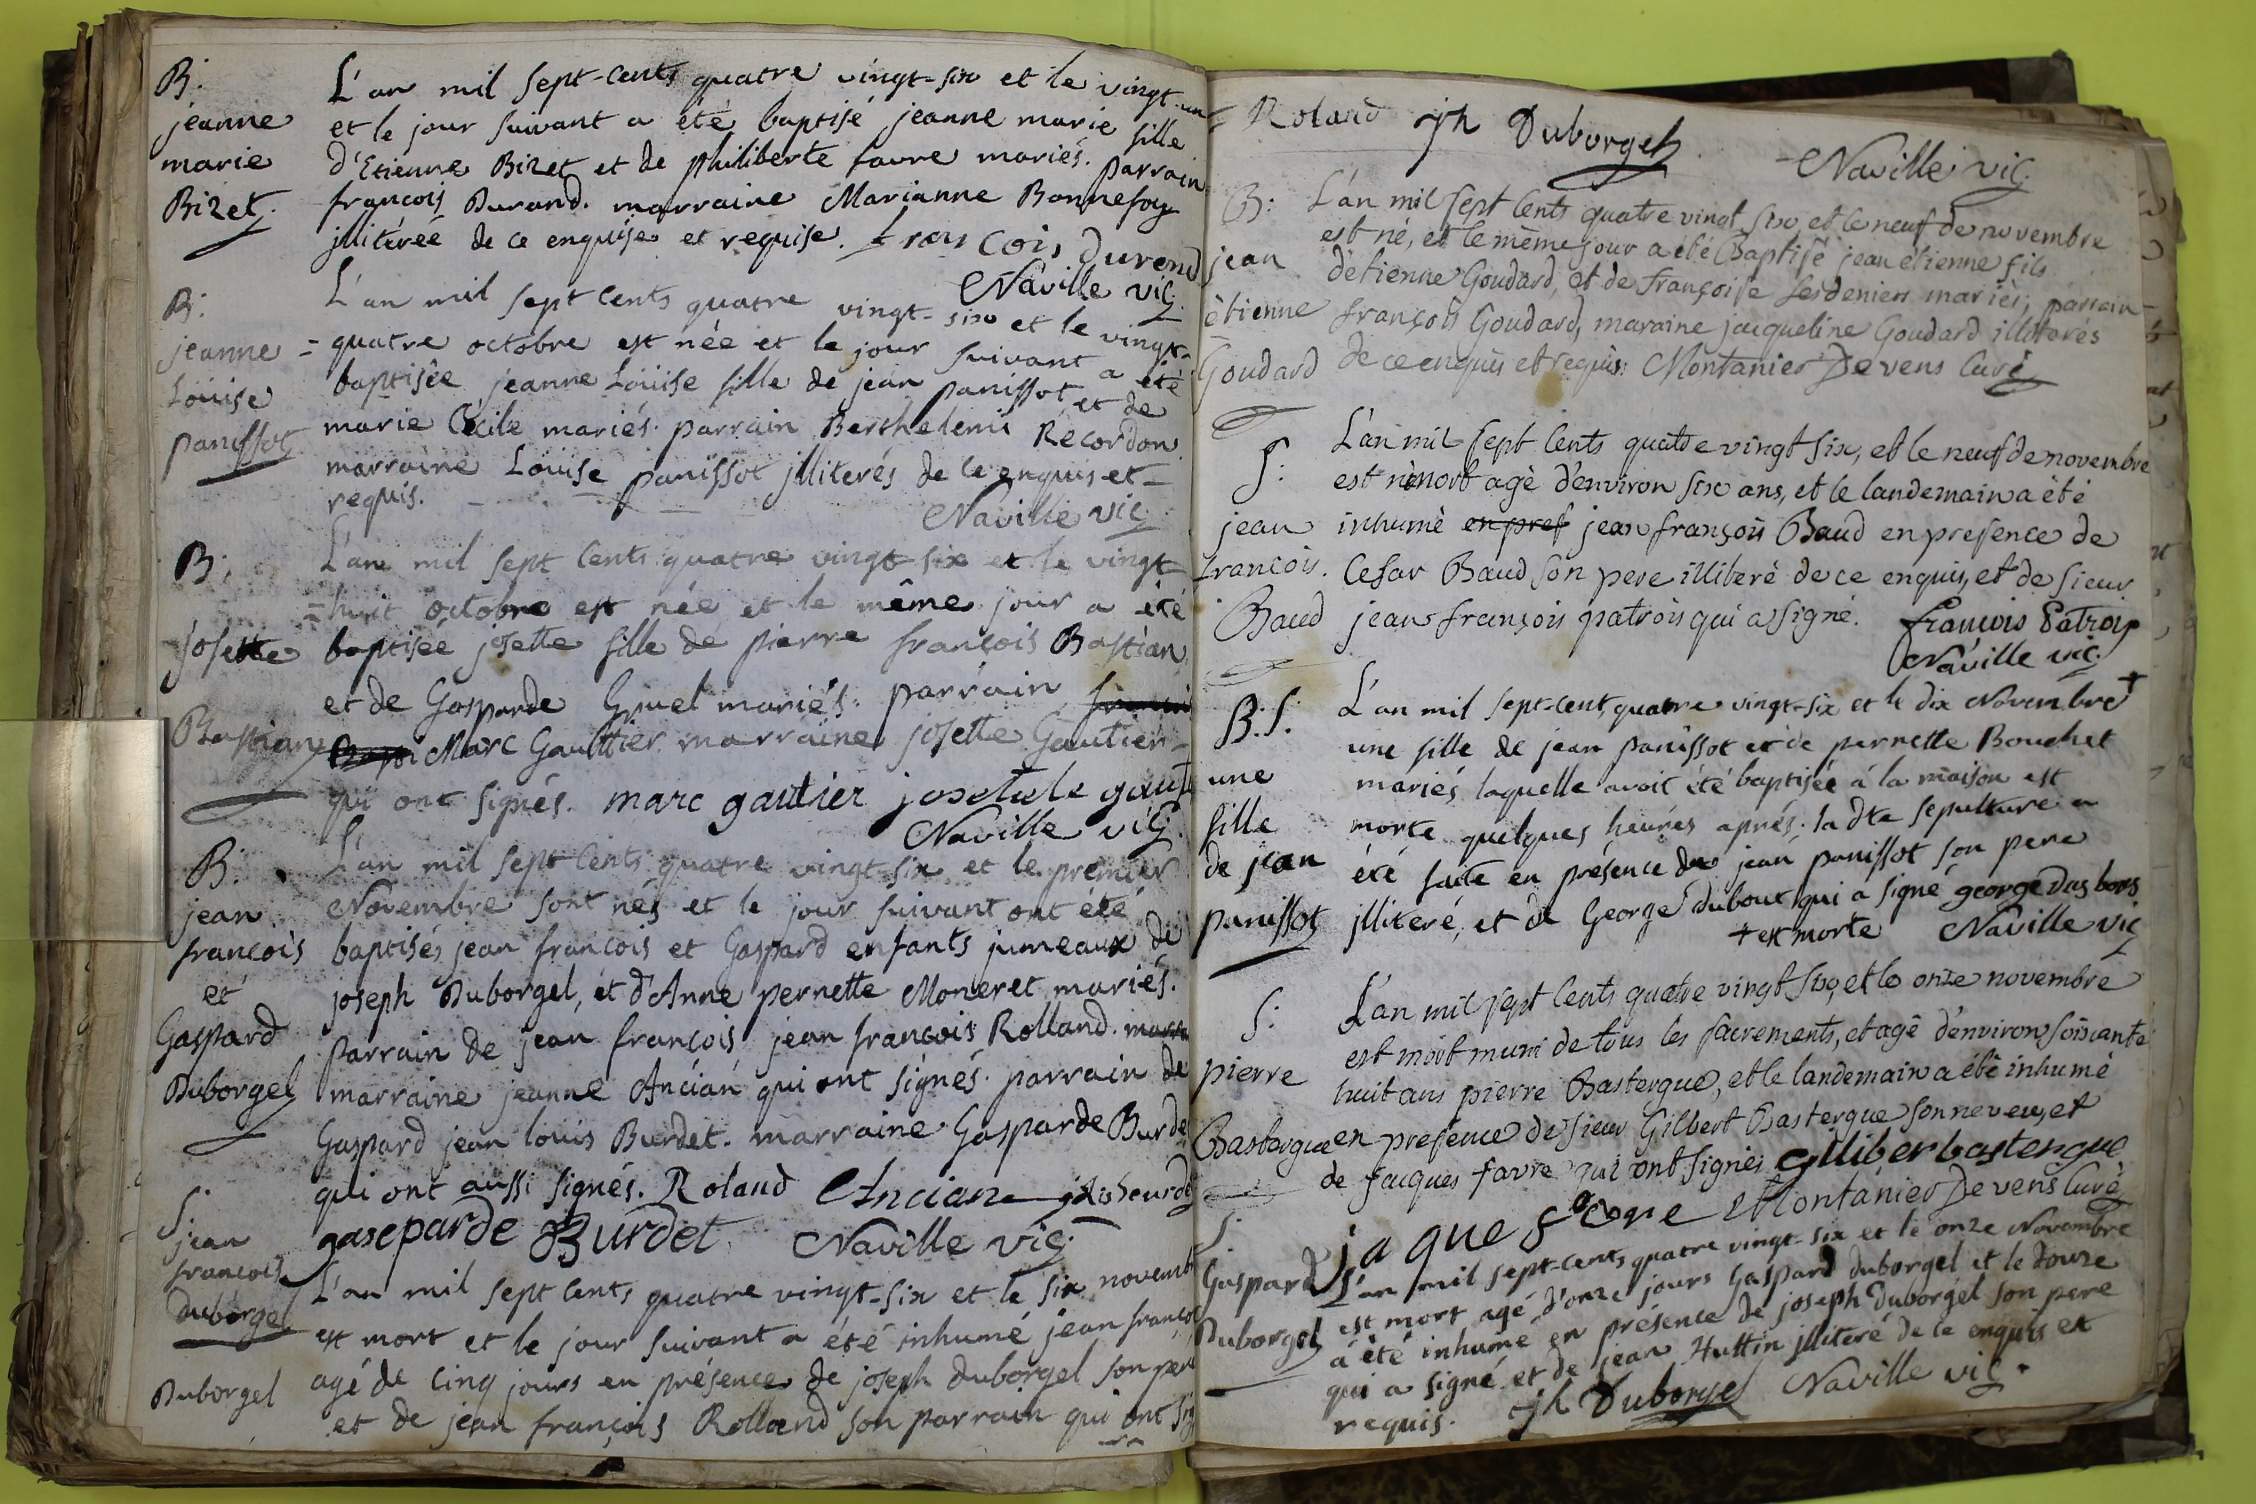 B:
jeanne
marie
Bizet
L'an mil sept-cents quatre vingt-six et le vingt-un
et le jour suivant a été baptisé jeanne marie fille
d'Etienne Bizet et de philiberte favre mariés. parrain
françois Durand. marraine Marianne Bonnefoy
jlliterée de ce enquise et requise. francois durend
Naville vic.
B:
jeanne
Loüise
panissot
L'an mil sept cents quatre vingt-six et le vingt-
=quatre octobre est née et le jour suivant a été
baptisée jeanne Loüise fille de jean panissot et de
marie Cécile mariés. parrain Berthelemi Récordon
marraine Loüise panissot jlliterés de ce enquis et
requis.
Naville vic
B:
josette
Bastian
L'an mil sept Cents quatre vingt-six et le vingt
=huit octobre est née et le même jour a été
baptisée josette fille de pierre françois Bastian
et de Gasparde Gruel mariés. parrain
Marc Gaulttier marraine josette Gautier
qui ont signés. marc gautier
Naville vic
B:
jean
françois
et
Gaspard
Duborgel
L'an mil sept Cents quatre vingt-six et le premier
Novembre sont nés et le jour suivant ont été
baptisés jean francois et Gaspard enfants jumeaux de
joseph Duborgel, et d'Anne pernette Moneret mariés.
parrain de jean françois jean françois Rolland.
marraine jeanne Ancian qui ont signés. parrain de
Gaspard jean louis Burdet. marraine Gasparde Burde
qui ont aussi signés. Roland Ancian
gaseparde Burdet Naville vic
S:
jean
francois
duborgel
Duborgel
L'an mil sept Cents quatre vingt-six et le six novemb
est mort et le jour suivant a été inhumé jean franço
agé de cinq jours en présence de joseph duborgel son per
et de jean françois Rolland son parrain qui ont sig
Roland jh Duborgel
Naville vic.
B:
jean
ètienne
Goudard
L'an mil sept Cents quatre vingt six, et le neuf de novembre
est né, et le mème jour a été Baptisé jean etienne fils
dètienne Goudard, et de françoise serdenier mariès, parrain
françois Goudard, maraine jacqueline Goudard illiterés
de ce enquis et requis: Montanier De vens Curè
S:
jean
francois.
Baud
L'an mil sept Cents quatre vingt six, et le neuf de novembre
est mort agè d'environ six ans, et le landemain a èté
inhumè en pref jean françois Baud en presence de
Cesar Baud son pere illiterè de ce enquis, et de sieur
jean françois patrois qui a signé. francois Patrois
Naville vic.
B.S.
une
fille
de jean
panissot
L'an mil sept-cent, quatre vingt-six et le dix Novembre +
une fille de jean panissot et de pernette Bouchet
mariés laquelle avoit été baptisée á la maison est
morte quelques heures aprés. la dte sepulture a
été faite en présence de jean panissot son pere
jlliteré, et de George dubout qui a signé george dus bois
+ est morte Naville vic
S:
pierre
Bastergue
L'an mil sept Cents quatre vingt six, et le onze novembre
est mort muni de tous les sacrements, et agè d'environ soisante
huit ans pierre Bastergue, et le landemain a été inhumè
en presence de sieur Gilbert Bastergue son neveu, et
de jacques favre qui ont signés gilliber bastergue
jaque favre Montanier De vens Curè
S.
Gaspard
Duborgel
L'an mil sept-cents quatre vingt-six et le onze Novembre
est mort agé d'onze jours Gaspard duborgel et le douze
a été inhumé en présence de joseph duborgel son pere
qui a signé et de jean Huttin jlliteré de ce enquis et
requis. jh Duborgel Naville vic.